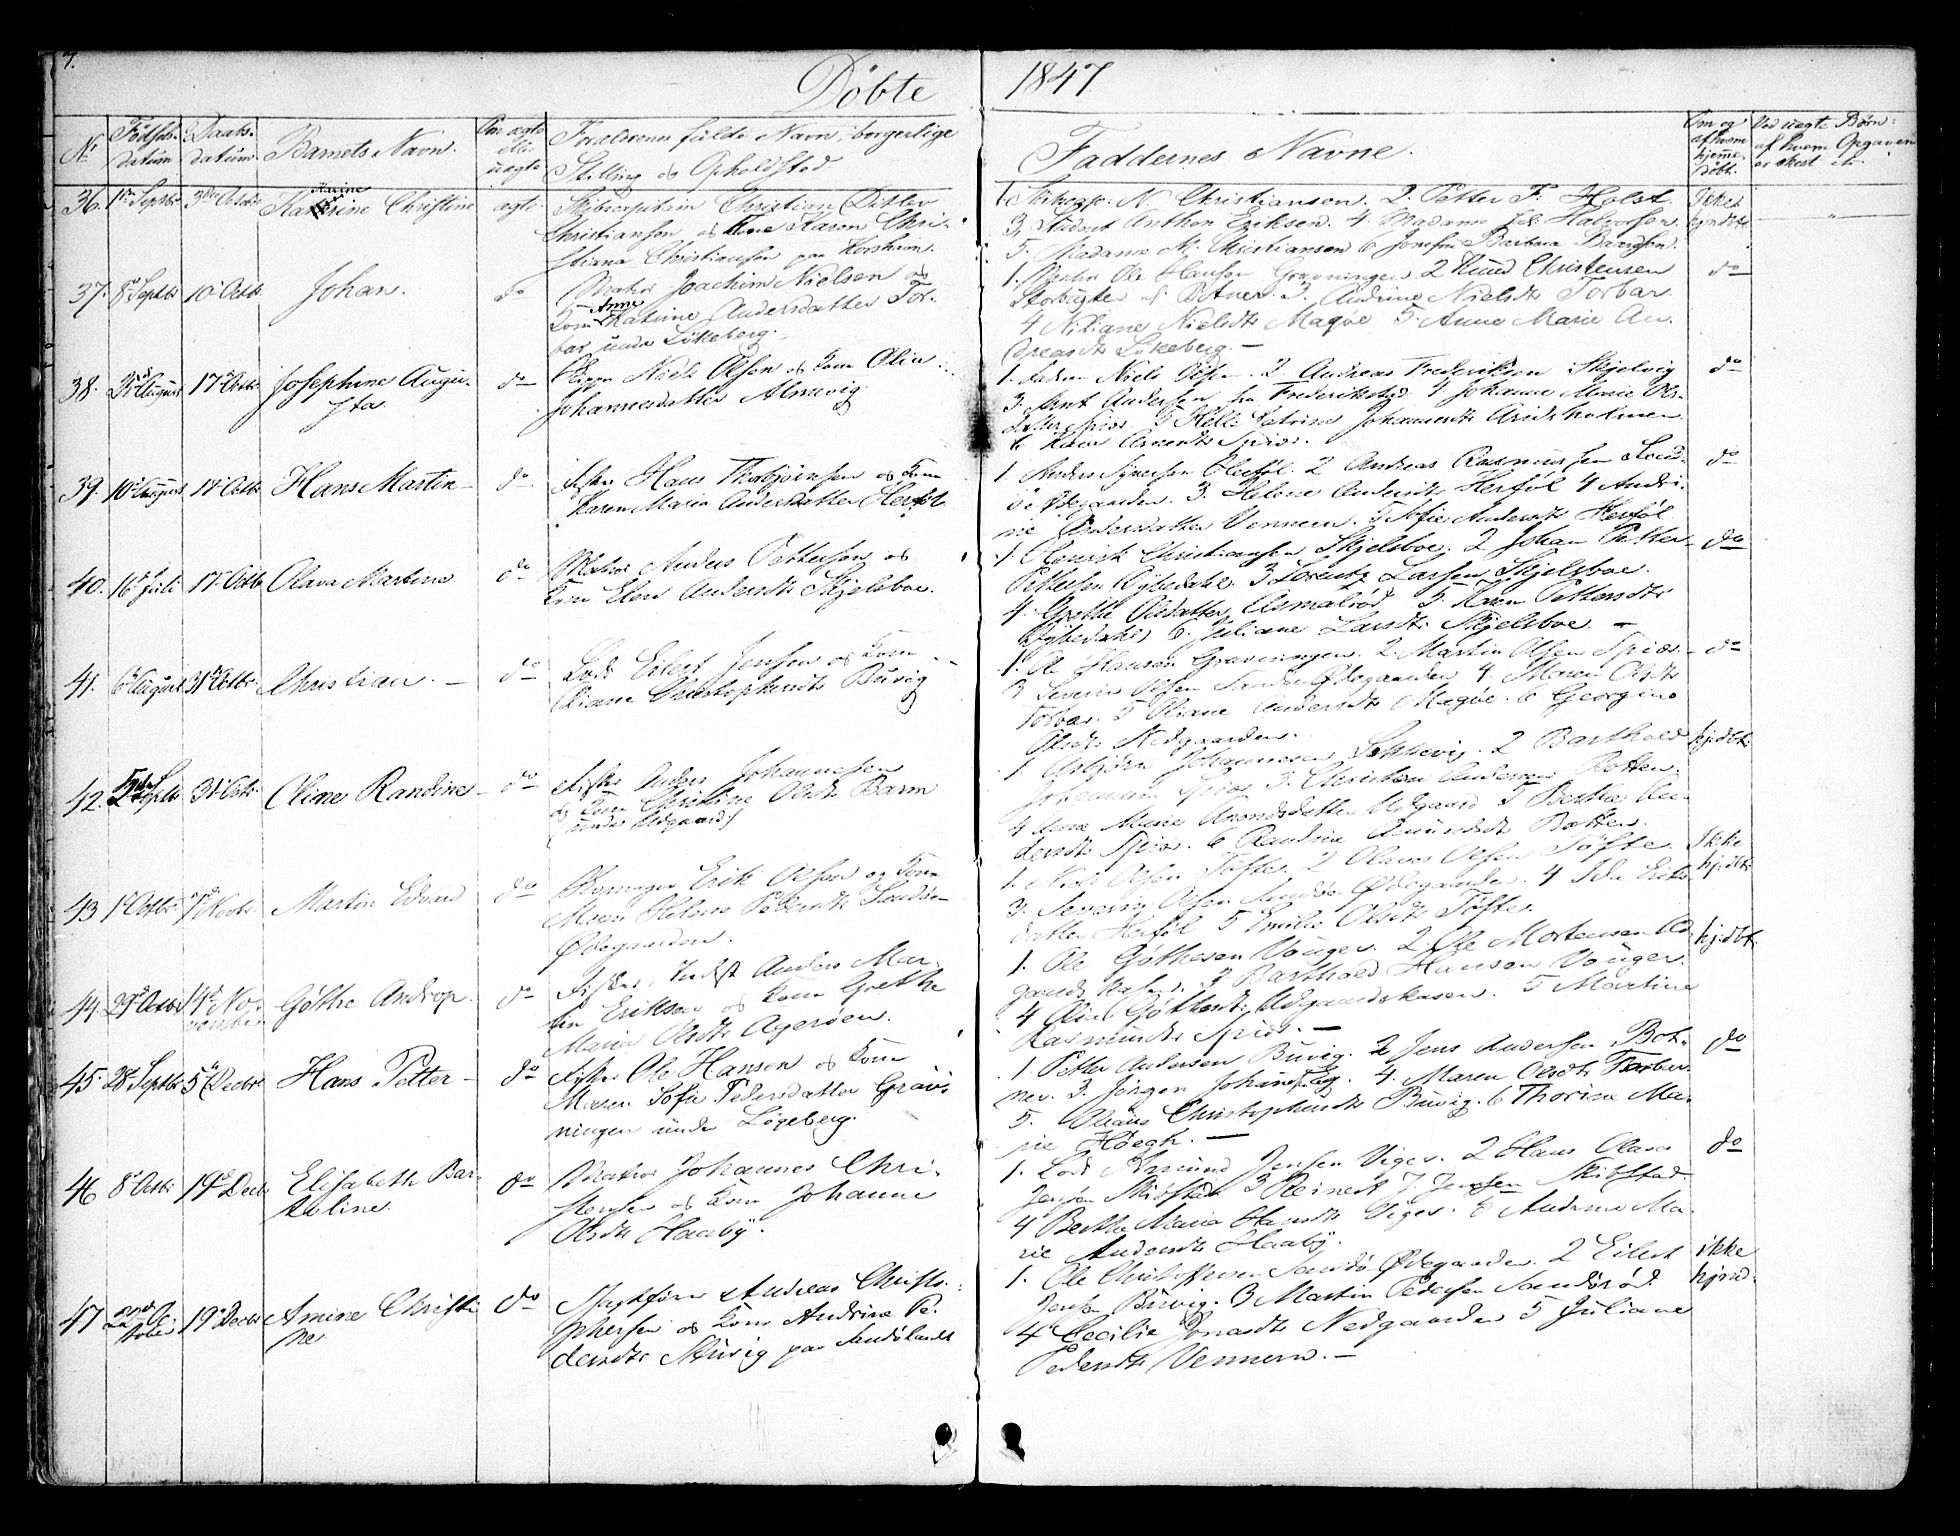 7.
Döbte 1847
No
Födsels-
datum
Daabs-
datum
Barnets Navn.
Om ægte
ell.
uægte
Forældrenes fulde Navn, borgerlige
Stilling og Opholdsted
Faddernes Navne.
Om og
af hvem
hjemme-
döbt.
Ved uægte Börn:
af hvem Opgaven
er skeet etc.
36. 1ste Septbr 3die Octbr Christine ægte. Skibscaptein Christian Ditlev
Christiansen og Kone Karen Chri-
stiana Christiansen paa
1. N. Christiansen. 2. Petter F. Holst.
3, Anthon Eriksen. 4. Madame Halvorsen.
5. Madame N. Christiansen 6 Jomfru Barbara
Ikke
hjmdbt.
37. 8de Septbr 10de Octbr Johan. do Matros Joachim Nielsen og
Kone Anne Katrine Andersdatter Tor-
bar under Lökeberg.
1. Ole Hansen Gravningen 2 Knud Christensen
Botner. 3. Andrine Nielsdtr Torbar.
4 Niliane Nielsdtr Magöe 5. Anne Marie An-
dreasdtr Lökeberg.— do
38. August 17de Octbr Josephine Augu-
sta do Niels Olsen og Kone Olia
Johannesdatter
1. Niels Olsen. 2 Andreas Fredriksen Skjelvig
3. Arnt Andersen fra Frederikstad 4 Johanne Marie Ols-
datter Spiær. 5 Helle Katrine Johannesdtr
6 Spiær. do
39. 10de August 17de Octbr Hans Martin— do Fisker Hans Thorbjörnsen og Kone
Karen Maria Andersdatter Herföl
1 Anders Herföl. 2 Andreas Rasmussen Sand-
ö Ödegaarden. 3. Helene Andersdtr Herföl 4 Andri-
ne Pedersdatter Vennern. 5 Sofie Andersdtr Herföl do
40. 16de Juli 17de Octb Olava Martine do Matros Anders Pettersen og
Kone Elen Andersdtr Skjelsboe.
1. Henrik Christiansen Skjelsboe. 2 Johan Petter
Pettersen Dybedahl 3 Lorentz Larsen Skjelsboe.
4. Grethe Olsdatter Asmalröd 5. Karen Pettersdtr
Dybedahl 6. Juliane Larsdtr Skjelsboe. — do
41. 6te August 31te Octbr. Christian. — do Lods Eilert Jensen og Kone
Oliane Christophersdtr Buvig
1. Ole Hansen Gravningen. 2. Martin Olsen Spiær.
3 Severin Olsen Sandö Ödegaarden 4. Maren Olsdtr
Torbar. 5 Oliane Andersdtr Magöe. 6 Georgine
Olsdtr Nedgaarden. do
42. Septbr 31te Octbr Oline Randine do Fisker Anders Johannesen
og Kone Christine Olsdtr Barm
(under Udgaard)
1. Asbjörn Johannesen 2 Barthold
Johannesen Spiær 3. Christian Andersen Rotten.
4 Anne Marie Amondsdatter Udgaard 5 Berthe An-
dersdtr Spiær. 6 Randine Amundsdtr
hjmdbt.
43 1te Octbr 7de Novbr. Martin Edvard do Erik Olsen og Kone
Maren Helene Pedersdtr Sandö
Ödegaarden.
1. Niels Olsen Töfte. 2 Olavus Olsen Töfte.
3. Severin Olsen Sandö Ödegaarden. 4 Ida Eriks-
datter Herföl 5 Emilie Olsdtr Töfte.
Ikke
hjmdbt.
44. 29de Octbr 14de No-
vember Göthe Androp. do Fisker, Indst Anders Mar-
tin Eriksen og Kone Grethe
Maria Olsdtr Ageröen.
1. Ole Göthesen Vauger. 2. Ole Mortensen Ud-
gaardskasen. 3 Barthold Hansen Vauger.
4 Olia Göthesdtr Udgaardskasen. 5 Martine
Rasmusdtr Spiær. — hjmdbt.
45. 28de Septbr 5te Decbr Hans Petter— do Fisker Ole Hansen og Kone
Maren Sofie Pedersdatter Grav-
ningen under Lögeberg.
1 Petter Andersen Buvig. 2 Jens Andersen Bot-
ner. 3. Jörgen 4. Maren Olsdtr Torbar
5. Oliane Christophersdtr Buvig. 6 Thorine Ma-
rie Höegh.— do
46 8de Octbr 19de Decbr Elisabeth Bar-
tholine. do Matros Johannes Chri-
stensen og Kone Johanne
Olsdtr Haaby.
1. Lods Amund Jensen Viger. 2 Hans Olava
Jensen Skibstad 3 Reinert J. Jensen Skibstad
4 Berthe Maria Hansdtr Viger. 5 Andrine Ma-
rie Andersdtr Haaby. do
47 22de Oc-
tober 19de Decbr Amine Christi-
ne do Skytsförer Andreas Christo-
phersen og Kone Andrine Pe-
dersdtr Stuvig paa Sandölandet
1. Ole Christophersen Sandö Ödegaarden. 2 Eilert
Jensen Buvig. 3 Martin Pedersen Sandöröd.
4 Cecilie Jonasdtr Nedgaarden 5 Juliane
Pedersdtr Vennern.—
ikke
hjmd.